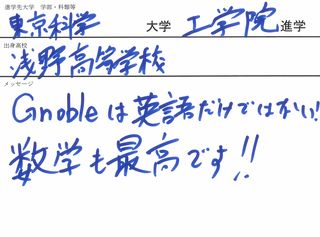 進学先大学 学部・科類等
東京科学 大学 工学院 進学
出身高校
浅野高等学校
メッセージ
Gnobleは英語だけではない!
数学も最高です!!